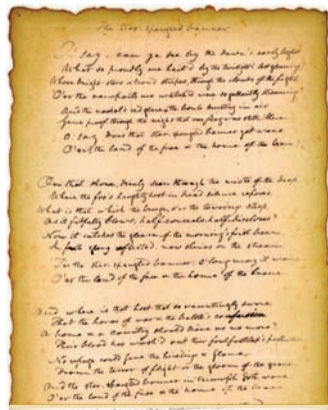 The Star-spangled banner
O! say, can ye see by the dawn's early light
What so proudly we hail'd by the twilight's last gleaming,
Whose bright stars & broad stripes, through the clouds of the fight
O'er the ramparts we watch'd were so gallantly streaming?
And the rocket's red glare the bomb bursting in air
Gave proof through the night that our flag was still there
O! say does that star-spangled banner yet wave
O'er the land of the free & the home of the brave?
On that shore, dimly seen through the mists of the deep
Where the foe's haughty host in dread silence reposes
What is that which the breeze, o'er the towering steep
As it fitfully blows, half conceals, half discloses?
Now it catches the gleam of the morning's first beam
In full glory reflected now shines on the stream
'Tis the star-spangled banner, O! long may it wave
O'er the land of the free & the home of the brave
And where is that host that so vauntingly swore
That the havoc of war & the battle's confusion
A home & a country should leave us no more?
Their blood has wash'd out their foul footstep's pollution
No refuge could save the hireling & slave
From the terror of flight or the gloom of the grave
And the star-spangled banner in triumph doth wave
O'er the land of the free & the home of the brave